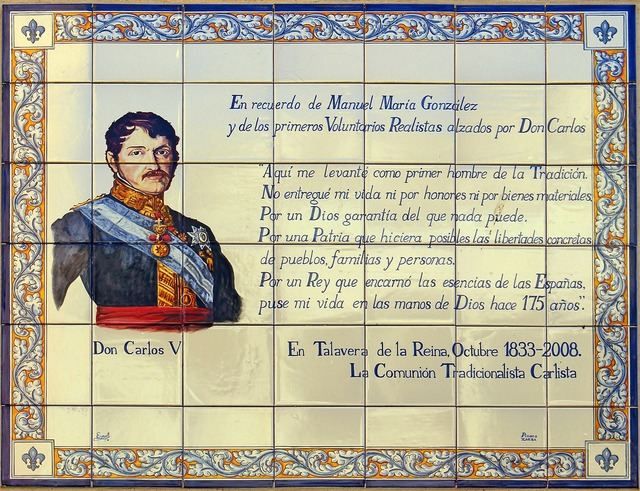 En recuerdo de Manuel María González
y de los primeros Voluntarios Realistas alzados por Don Carlos
"Aquí me levanté como primer hombre de la Tradición.
No entregué mi vida ni por honores ni por bienes materiales.
Por un Dios garantía del que nada puede.
Por una Patria que hiciera posibles las libertades concretas
de pueblos, familias y personas.
Por un Rey que encarnó las esencias de las Españas,
puse mi vida en las manos de Dios hace 175 años."
Don Carlos V
En Talavera de la Reina, Octubre 1833-2008.
La Comunión Tradicionalista Carlista